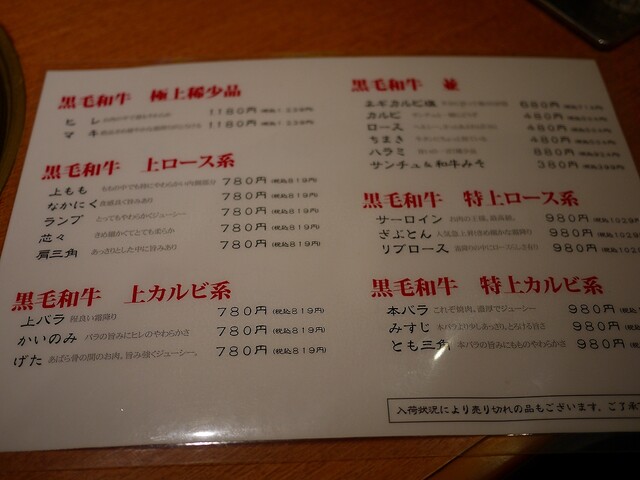 黒毛和牛 極上稀少品
ヒレ 1180円
マキ 1180円
黒毛和牛 上ロース系
上もも ももの中でも特にやわらかい内側部分 780円(税込819円)
なかにく 食感良く旨みあり 780円(税込819円)
ランプ とってもやわらかくジューシー 780円(税込819円)
芯々 きめ細かくてとても柔らか 780円(税込819円)
肩三角 あっさりとした中に旨みあり 780円(税込819円)
黒毛和牛 上カルビ系
上バラ 程良い霜降り 780円(税込819円)
かいのみ バラの旨みにヒレのやわらかさ 780円(税込819円)
げた あばら骨の間のお肉。旨み強くジューシー。 780円(税込819円)
黒毛和牛 並
ネギカルビ塩 680円
カルビ 480円
ロース 480円
ちまき 480円
ハラミ 880円
サンチュ&和牛みそ 380円
黒毛和牛 特上ロース系
サーロイン お肉の王様、最高級。 980円(税込1029
ざぶとん 人気急上昇!きめ細かな霜降り 980円(税込1029
リブロース 霜降りの中にロースらしさ有り 980円(税込102
黒毛和牛 特上カルビ系
本バラ これぞ焼肉。濃厚でジューシー 980円(税込
みすじ 本バラより少しあっさり。とろける旨さ 980円(税込
とも三角 本バラの旨みにもものやわらかさ 980円(税
入荷状況により売り切れの品もございます。ご了承